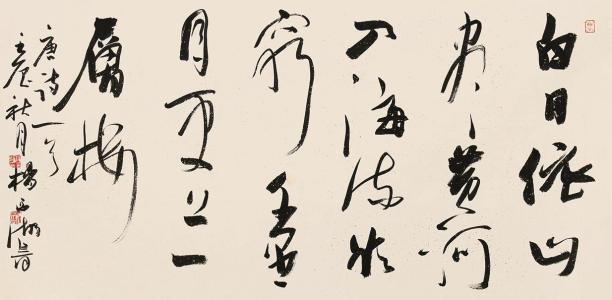 白日依山
盡黄河
入海流欲
窮千里
目更上一
層楼
唐诗一首
壬辰秋月楊西湖書